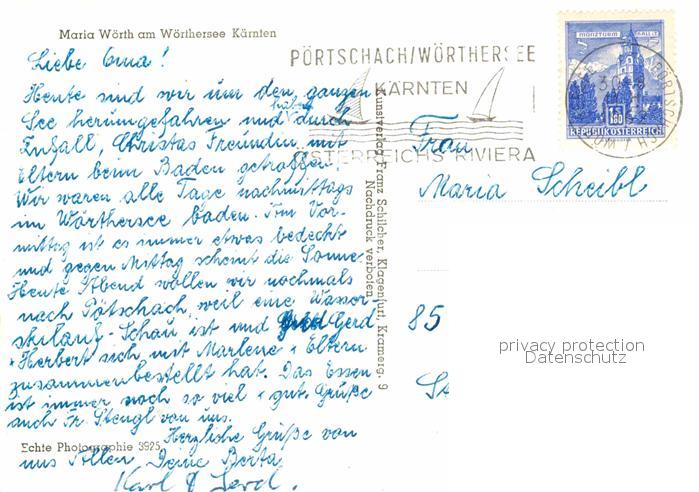 Maria Wörth am Wörthersee Kärnten
Liebe Oma!
Heute sind wir um den ganzen
See herumgefahren und haben durch
Zufall, Christas Freundin mit
Eltern beim Baden getroffen.
Wir waren alle Tage nachmittags
im Wörthersee baden. Am Vor-
mittag ist es immer etwas bedeckt
und gegen Mittag scheint die Sonne.
Heute Abend wollen wir nochmals
nach Pötschach, weil eine Wasser
skilauf-Schau ist und Gerd
+ Herbert sich mit Marlene + Eltern
zusammenbestellt hat. Das Essen
ist immer noch so viel + gut. Grüße
auch Fr. Stengl von uns.
Herzliche Grüße von
uns Allen Deine Berta
Karl & Gerd.
Echte Photographie 3925
Kunstverlag Franz Schilcher, Klagenfurt, Kramerg. 9
Nachdruck verboten
PÖRTSCHACH/WÖRTHERSEE
KÄRNTEN
ÖSTERREICHS RIVIERA
MÜNZTURM HALL
S 1.80
REPUBLIK ÖSTERREICH
Frau
Maria Scheibl
85
privacy protection
Datenschutz